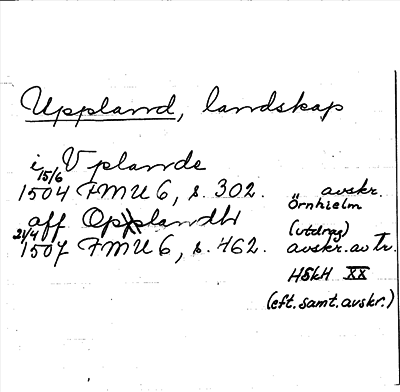 Uppland, landskap
i Vplande
15/6 1504 FMU 6, s. 302. avskr.
Örnhielm
aff Opplandh (utdrag)
21/4 1507 FMU 6, s. 462. avskr. av tr.
HSkH XX
(eft. samt. avskr.)